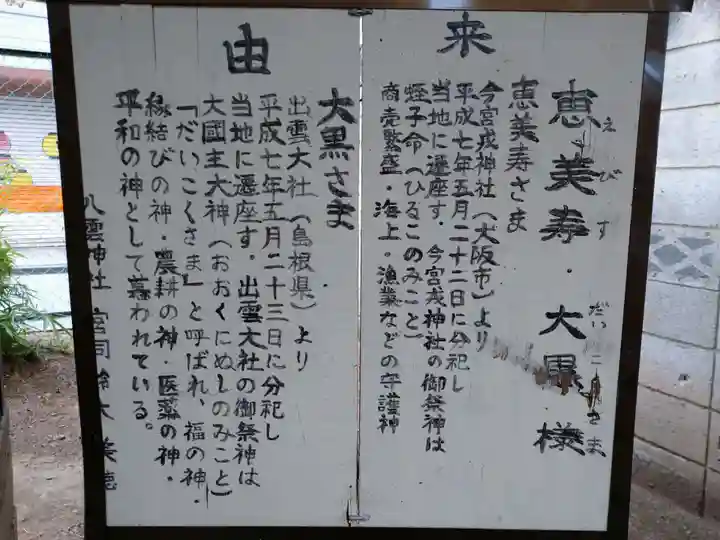 恵美寿・大黒様
えびす
だいこくさま
来
恵美寿さま
今宮戎神社(大阪市)より
平成七年五月二十二日に分祀し
当地に遷座す．今宮戎神社の御祭神は
蛭子命(ひるこのみこと)
商売繁盛・海上・漁業などの守護神
由
大黒さま
出雲大社(島根県)より
平成七年五月二十三日に分祀し
当地に遷座す．出雲大社の御祭神は
大國主大神(おおくにぬしのみこと)
「だいこくさま」と呼ばれ、福の神・
縁結びの神・農耕の神・医薬の神・
平和の神として慕われている。
八雲神社 宮司 鈴木 美徳